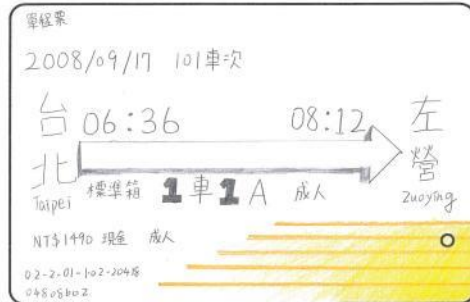 單程票
2008/09/17 101車次
台北 06:36 08:12 左營
Taipei 標準箱 1車1A 成人 Zuoying
NT$1490 現金 成人
02-2-01-1-02-2048
04808602